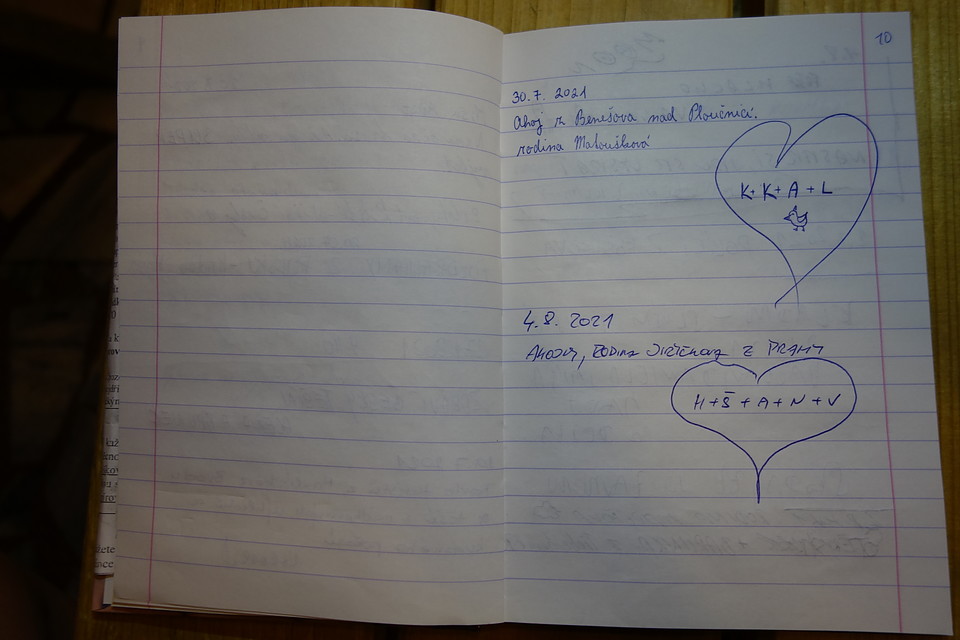 10
30. 7. 2021
Ahoj z Benešova nad Ploučnicí.
rodina Matoušková
K + K + A + L
4. 8. 2021
AHOJKY, RODINA Z PRAHY
H + Š + A + N + V